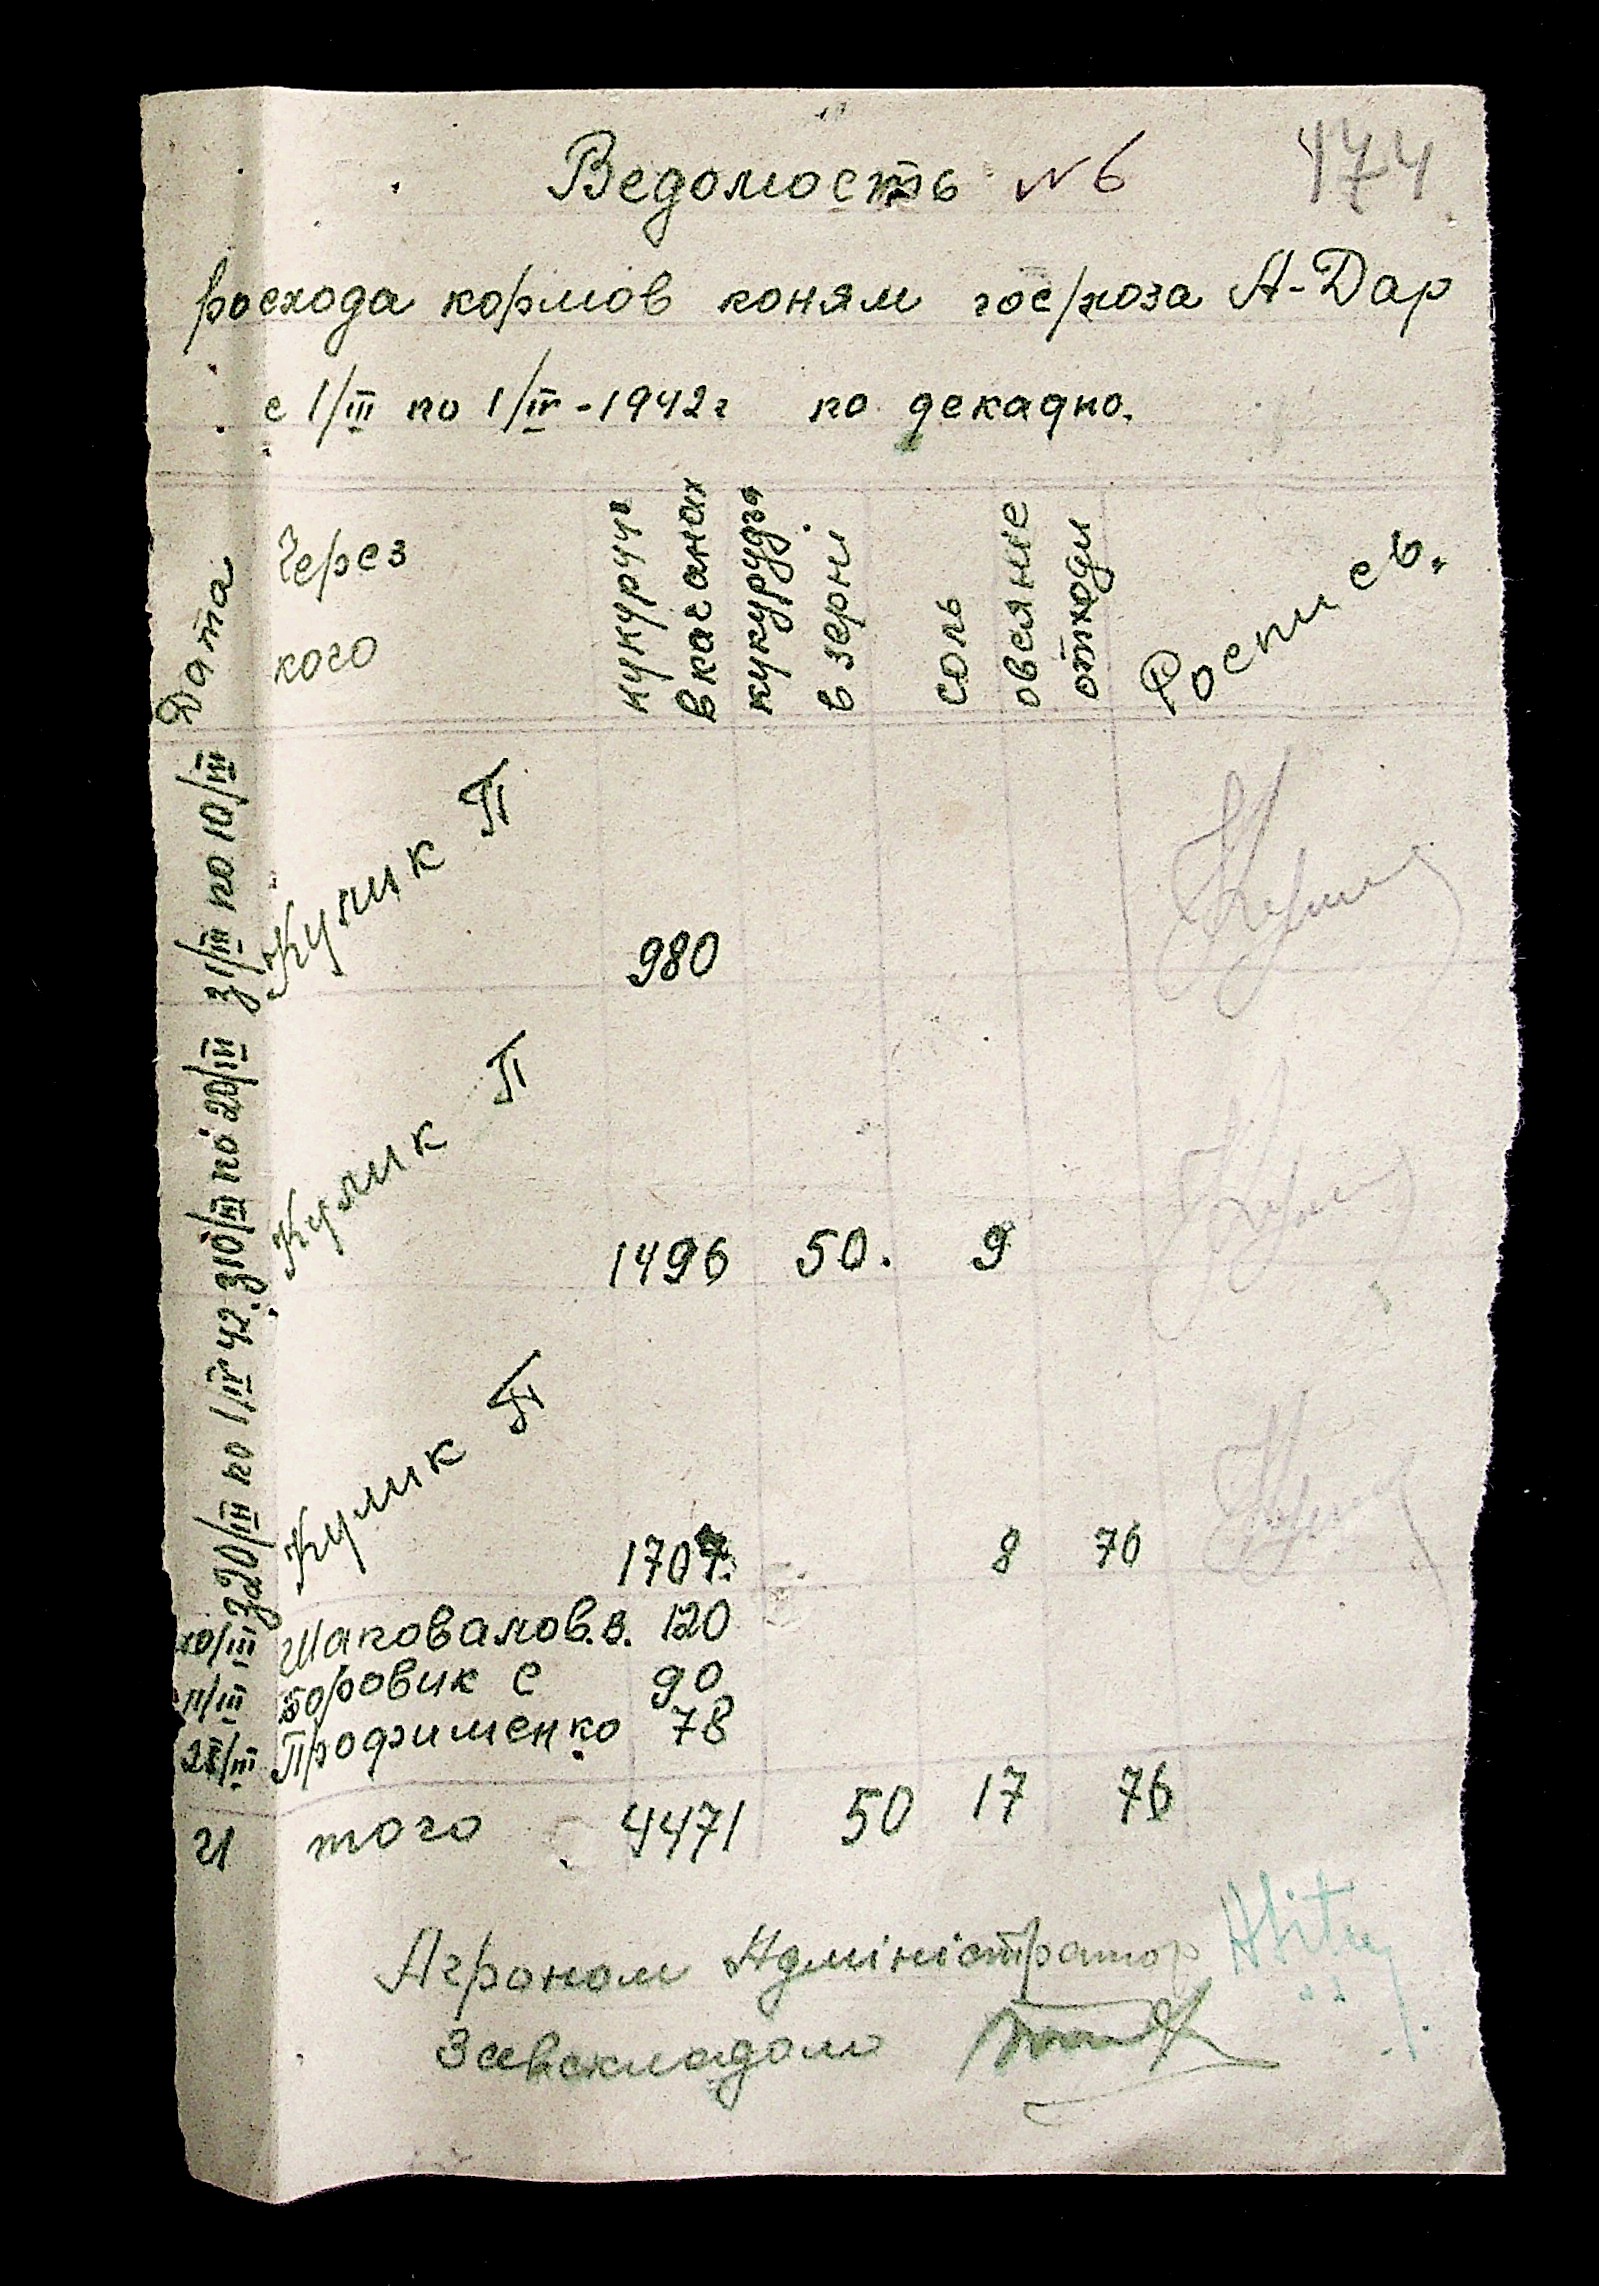 174
Ведомость №6
росхода кормов коням госрхоза А-Дар
с 1/III по 1/IV-1942г по декадно.
Дата
Через кого
кукуруз в качанах
кукурудза в зерні
соль
овсяние отходи
Роспись.
з 1/III по 10/III Кулик П 980
з 10/III по 20/III Кулик П 1496 50. 9
з 20/III по 1/IV 42. Кулик П 1707. 8 76
10/III Шаповалов.в. 120
11/III Боровик С 90
28/III Профименко 78
И того 4471 50 17 76
Агроном Адміністратор
Завскладом